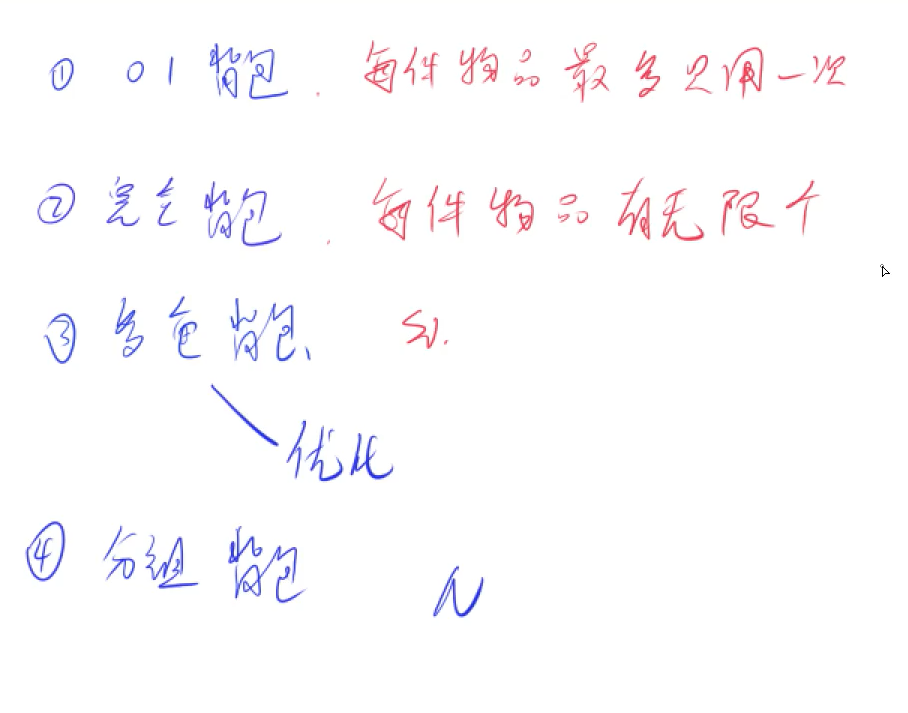 ① 01背包. 每件物品最多只用一次
② 完全背包. 每件物品有无限个
③ 多色背包、 Si.
优化
④ 分组背包 N